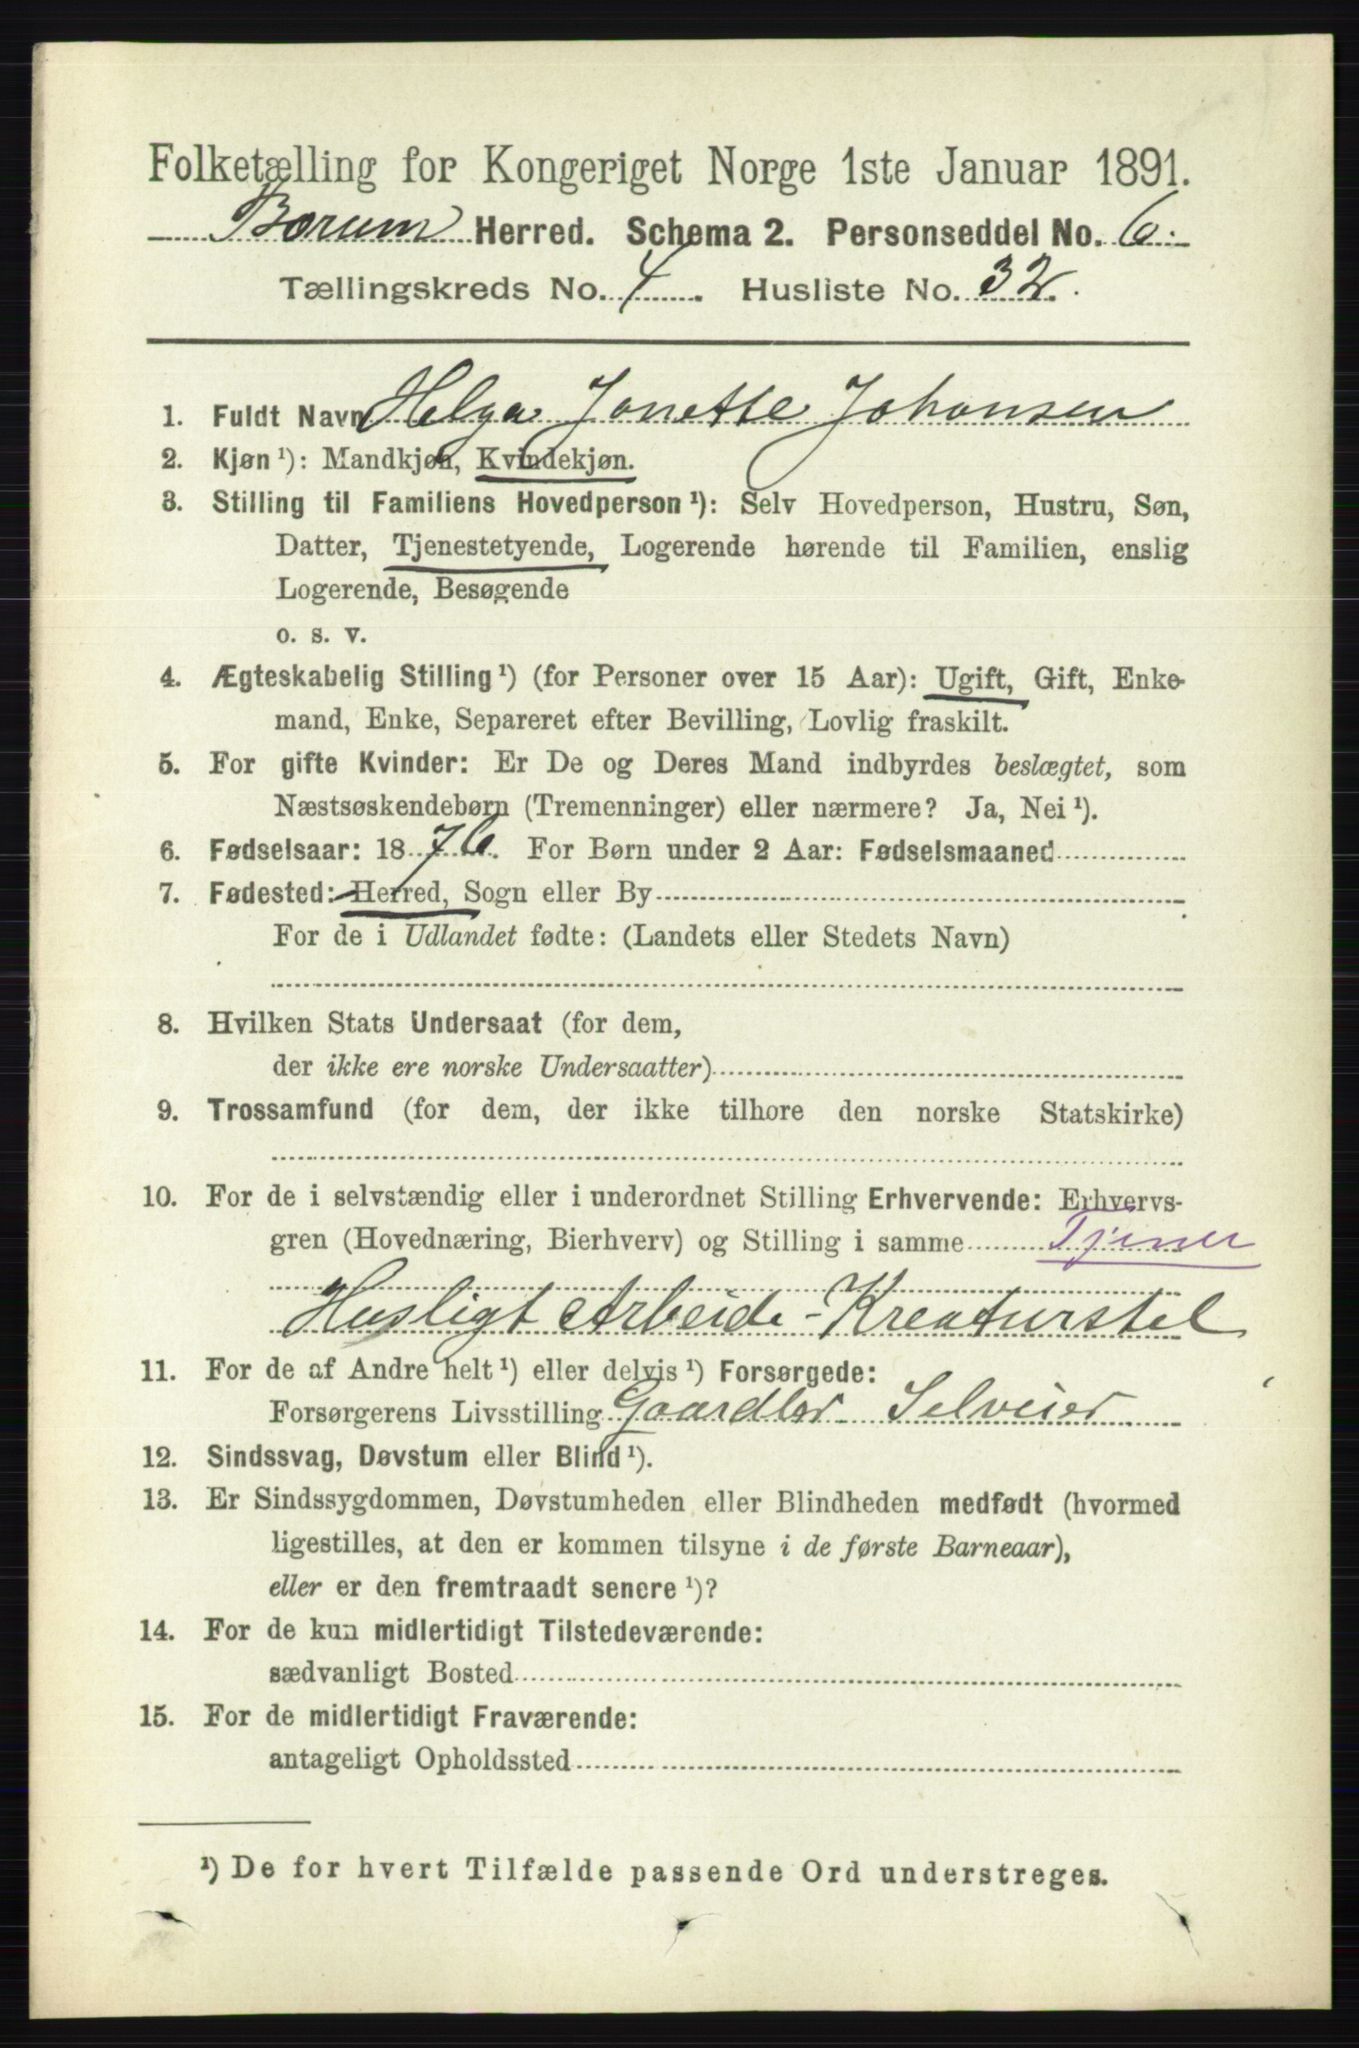 Folketælling for Kongeriget Norge 1ste Januar 1891.
Borum Herred. Schema 2. Personseddel No. 6.
Tællingskreds No. 4. Husliste No. 32.
1. Fuldt Navn Helga Jonette Johansen
2. Kjøn ¹): Mandkjøn, Kvindekjøn.
3. Stilling til Familiens Hovedperson ¹): Selv Hovedperson, Hustru, Søn,
Datter, Tjenestetyende, Logerende hørende til Familien, enslig
Logerende, Besøgende
o. s. v.
4. Ægteskabelig Stilling ¹) (for Personer over 15 Aar): Ugift, Gift, Enke-
mand, Enke, Separeret efter Bevilling, Lovlig fraskilt.
5. For gifte Kvinder: Er De og Deres Mand indbyrdes beslægtet, som
Næstsøskendebørn (Tremenninger) eller nærmere? Ja, Nei ¹).
6. Fødselsaar: 1876. For Børn under 2 Aar: Fødselsmaaned
7. Fødested: Herred, Sogn eller By
For de i Udlandet fødte: (Landets eller Stedets Navn)
8. Hvilken Stats Undersaat (for dem,
der ikke ere norske Undersaatter)
9. Trossamfund (for dem, der ikke tilhøre den norske Statskirke)
10. For de i selvstændig eller i underordnet Stilling Erhvervende: Erhvervs-
gren (Hovednæring, Bierhverv) og Stilling i samme Tjener
Husligt Arbeide - Kreaturstel
11. For de af Andre helt ¹) eller delvis ¹) Forsørgede:
Forsørgerens Livsstilling Gaardbr Selveier
12. Sindssvag, Døvstum eller Blind ¹).
13. Er Sindssygdommen, Døvstumheden eller Blindheden medfødt (hvormed
ligestilles, at den er kommen tilsyne i de første Barneaar),
eller er den fremtraadt senere ¹)?
14. For de kun midlertidigt Tilstedeværende:
sædvanligt Bosted
15. For de midlertidigt Fraværende:
antageligt Opholdssted
¹) De for hvert Tilfælde passende Ord understreges.